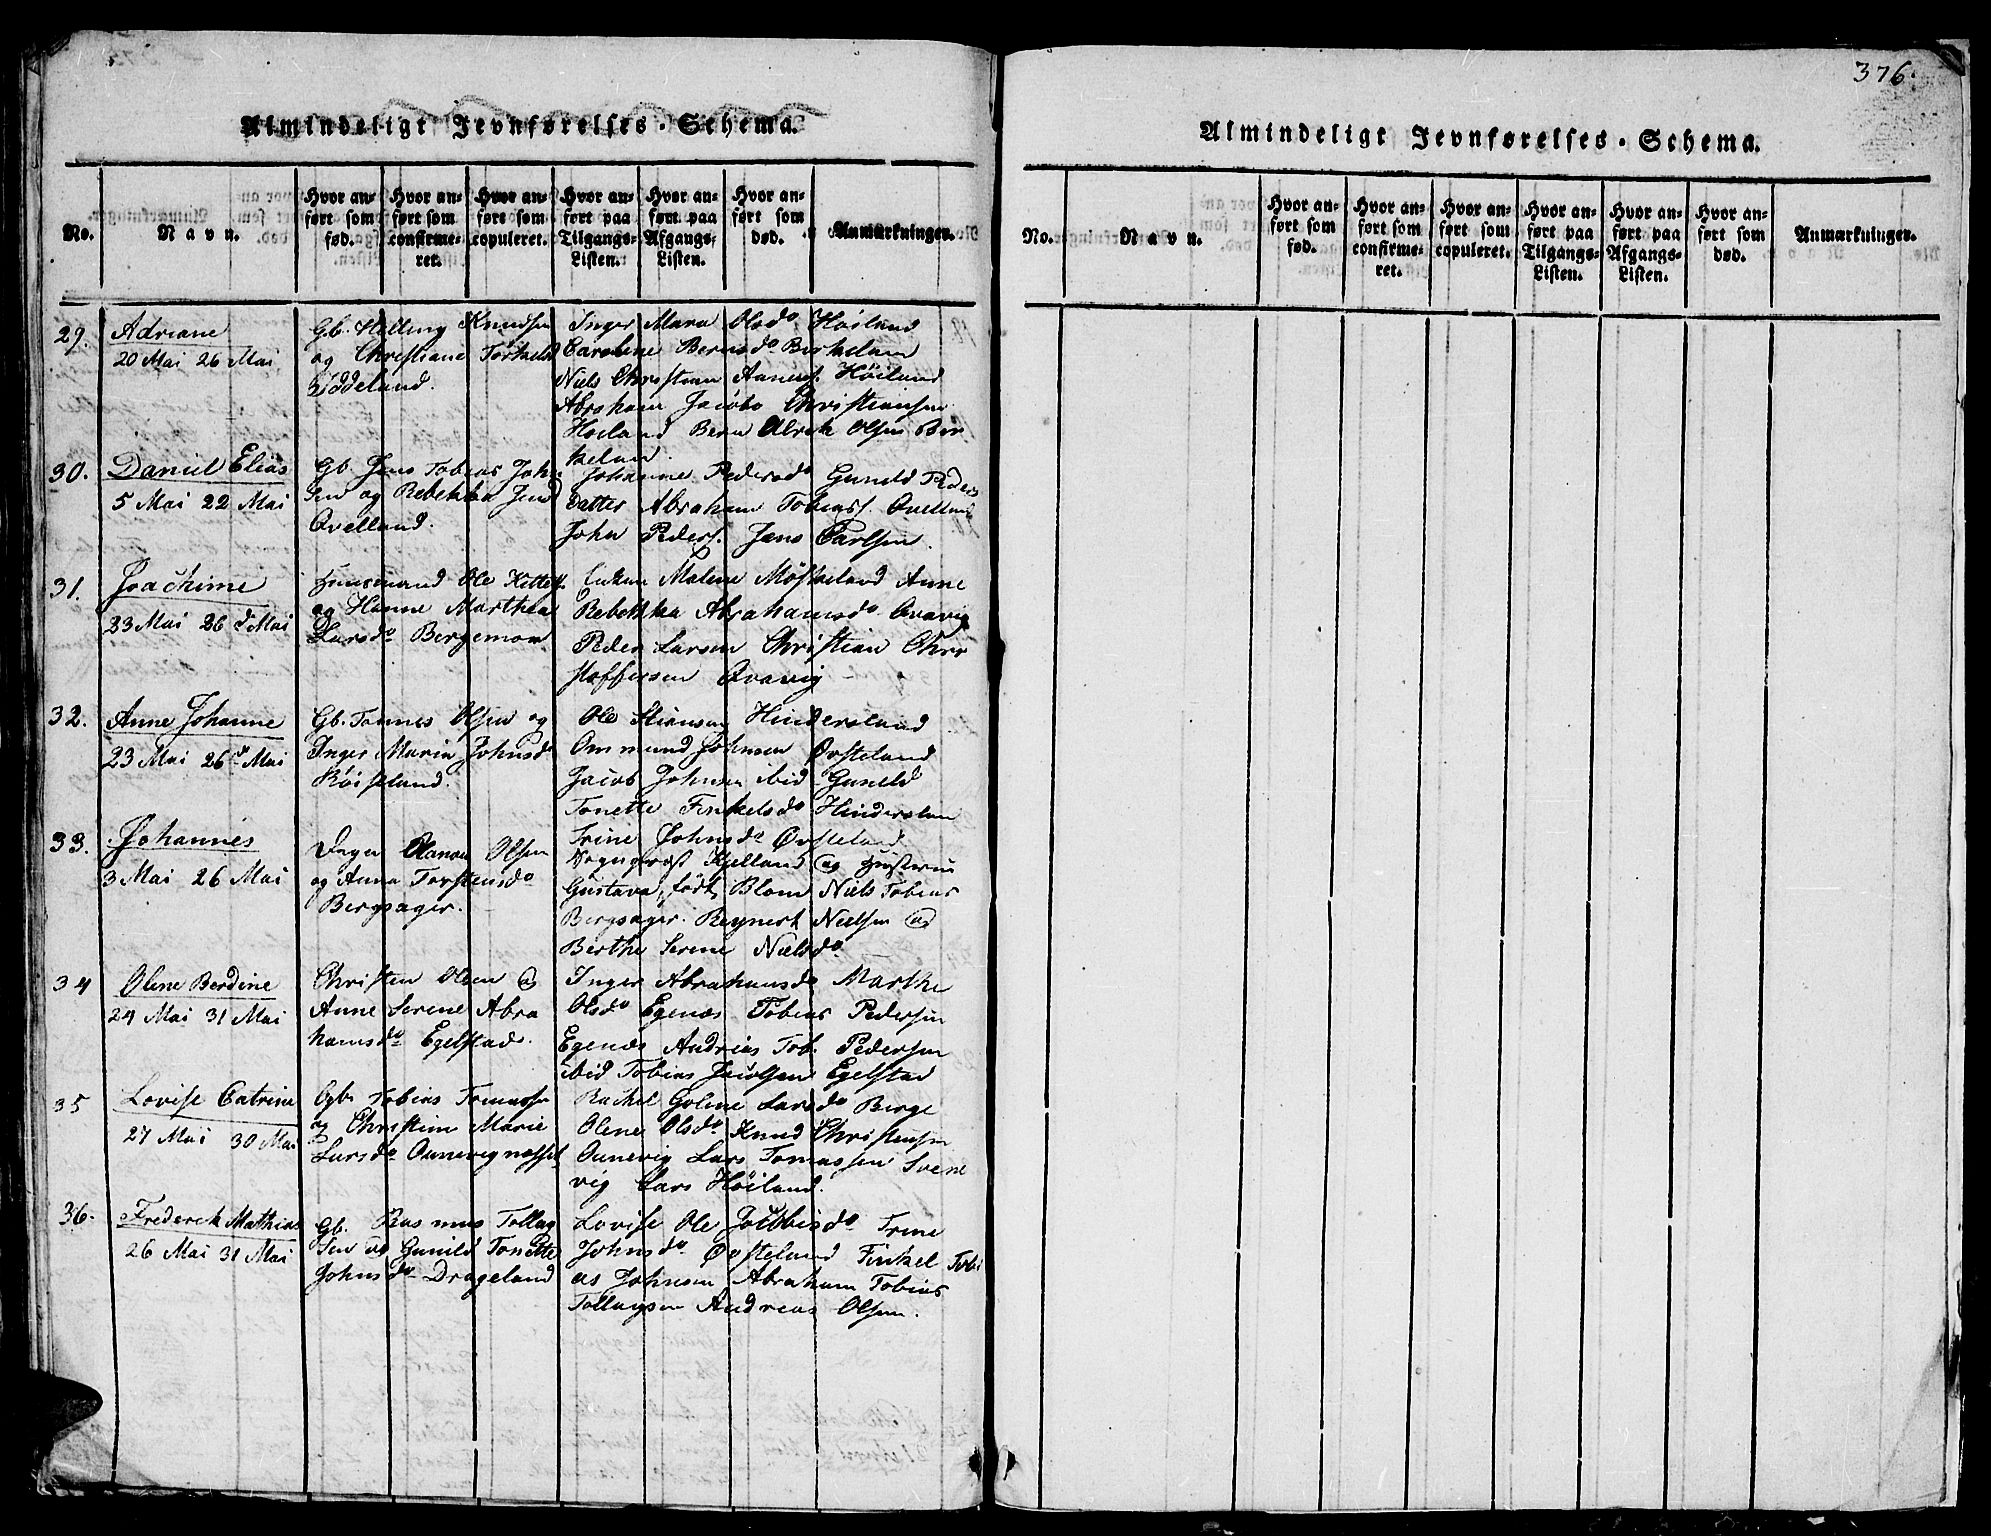 376.
Almindeligt Jevnførelses-Schema.
No.
Navn.
Hvor anført som fød.
Hvor anført som confirmeret.
Hvor anført som copuleret.
Hvor anført paa Tilgangs-Listen.
Hvor anført paa Afgangs-Listen.
Hvor anført som død.
Anmærkninger.
29.
Adriane
20 Mai 26 Mai
Gb. Knudsen
og Christiane Torkelsd
Inger Mara Olsdo Höiland
Caroline Berntsdo Birkeland
Niels Christian Høiland
Abraham Jacob Christiansen
Høiland Bern Ulrik Olsen Bir
keland
30.
Daniel Elias
5 Mai 22 Mai
Gb. Jens Tobias John
sen og Rebekka Jens
Qvelland.
Johanne Pedersdo Guneld Peders
datter Abraham Tobiass. Qvelland
John Peders. Jens Carlsen.
31.
Joachime
23 Mai 26 d Mai
Huusmand Ole Kittels.
og Hanne Marthea
Larsdo Bergemoen
Malene Anne
Rebekka Abrahamsdo Qvavig
Peder Larsen Christian Chri
stoffersen Qvavig
32.
Anne Johanne
23 Mai 26 d Mai
Gb. Tønnes Olsen og
Inger Maria Johnsdo
Röiseland.
Ole Hindersland
Ommund Johnsen Øvsteland
Jacob Johnsen ibid Guneld
Tonette Finkelsdo Hinderslan
Trine Johnsdo Øvsteland
33.
Johannes
3 Mai 26 Mai
Olsen
og Anna Torstensdo
Bergsager.
Kjelland og Hustrue
Gustava, født Blom Niels Tobias
Bergsager. Reynert Nielsen og
Berthe Serene Nielsdo
34
Olene Berdine
24 Mai 31 Mai
Christen Olsen og
Anne Serene Abra
hamsdo Egelstad.
Inger Abrahamsdo Marthe
Olsdo Egenæs Tobias Pedersen
Egenæs Andreas Tob. Pedersen
ibid Tobias Jacobsen Egelstad
35
Lovise Catrine
27 Mai 30 Mai
Tobias Tomassen
og Christine Marie
Larsdo
Rachel Goline Larsdo Berge
Olene Olsdo Knud Christensen
Aunevig Lars Tomassen Svene
vig Lars Höiland.
36.
Frederik Mathias
26 Mai 31 Mai
Gb. Rasmus Tollag
sen og Gunild Tonette
Johnsdo Drageland
Lovise Ole Jacobisdo Trine
Johnsdo Øvsteland Finkel Tobi
as Johnsen Abraham Tobias
Tollagsen Andreas Olsen.
Almindeligt Jevnførelses-Schema.
No.
Navn.
Hvor anført som fød.
Hvor anført som confirmeret.
Hvor anført som copuleret.
Hvor anført paa Tilgangs-Listen.
Hvor anført paa Afgangs-Listen.
Hvor anført som død.
Anmarkninger.